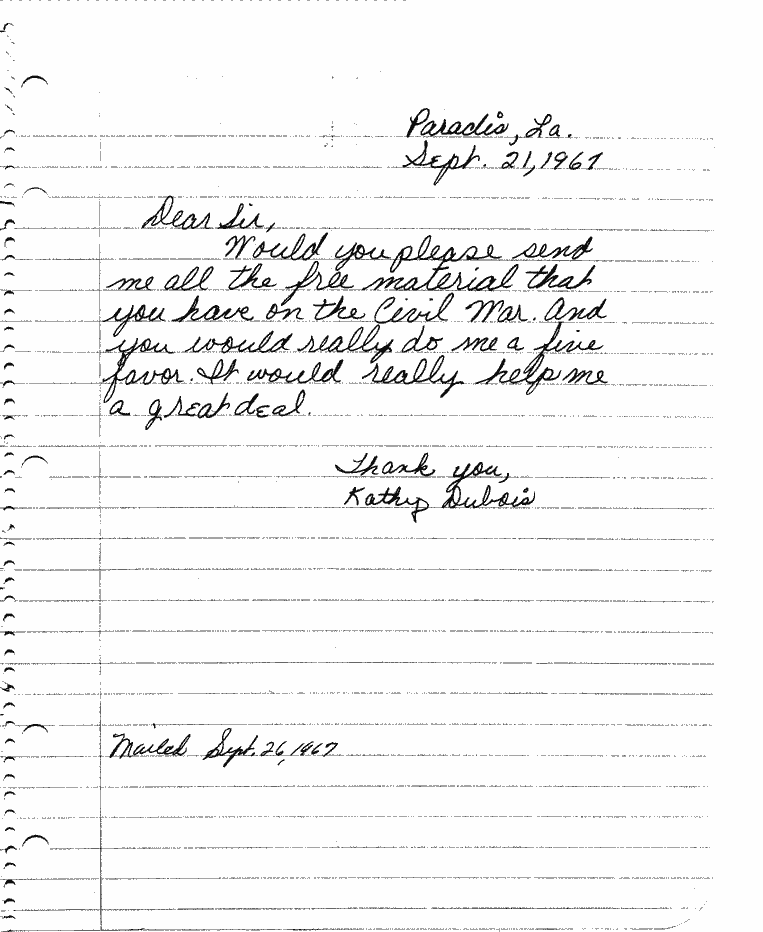 Paradis, La.
Sept. 21, 1967
Dear Sir,
Would you please send
me all the free material that
you have on the Civil War. And
you would really do me a fine
favor. It would really help me
a great deal.
Thank you,
Kathy Dubois
Mailed Sept. 26, 1967